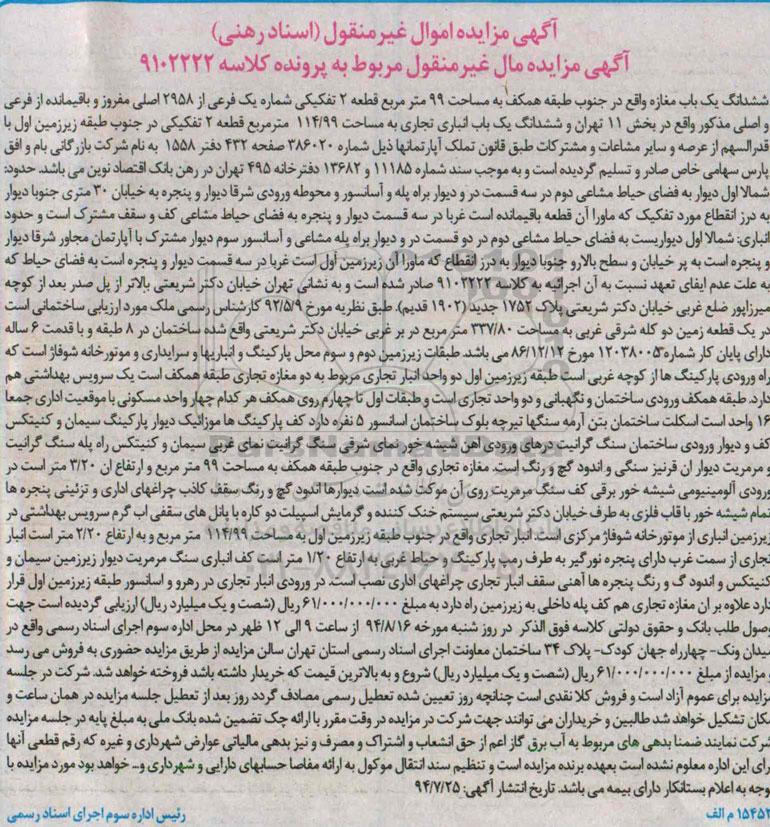 آگهی مزایده اموال غیرمنقول (اسناد رهنی)
آگهی مزایده مال غیرمنقول مربوط به پرونده کلاسه ۹۱۰۲۲۲۲
ششدانگ یک باب مغازه واقع در جنوب طبقه همکف به مساحت ۹۹ متر مربع قطعه ۲ تفکیکی شماره یک فرعی از ۲۹۵۸ اصلی مفروز و باقیمانده از فرعی
و اصلی مذکور واقع در بخش ۱۱ تهران و ششدانگ یک باب انباری تجاری به مساحت ۱۱۴/۹۹ مترمربع قطعه ۲ تفکیکی در جنوب طبقه زیرزمین اول با
قدرالسهم از عرصه و سایر مشاعات و مشترکات طبق قانون تملک آپارتمانها ذیل شماره ۳۸۶۰۲۰ صفحه ۴۳۲ دفتر ۱۵۵۸ به نام شرکت بازرگانی بام و افق
پارس سهامی خاص صادر و تسلیم گردیده است و به موجب سند شماره ۱۱۱۸۵ و ۱۳۶۸۲ دفترخانه ۴۹۵ تهران در رهن بانک اقتصاد نوین می باشد. حدود:
شمالا اول دیوار به فضای حیاط مشاعی دوم در سه قسمت در و دیوار براه پله و آسانسور و محوطه ورودی شرقا دیوار و پنجره به خیابان ۳۰ متری جنوبا دیوار
به درز انقطاع مورد تفکیک که ماورا آن قطعه باقیمانده است غربا در سه قسمت دیوار و پنجره به فضای حیاط مشاعی کف و سقف مشترک است و حدود
انباری: شمالا اول دیواریست به فضای حیاط مشاعی دوم در دو قسمت در و دیوار براه پله مشاعی و آسانسور سوم دیوار مشترک با آپارتمان مجاور شرقا دیوار
و پنجره است به پر خیابان و سطح بالارو جنوبا دیوار به درز انقطاع که ماورا آن زیرزمین اول است غربا در سه قسمت دیوار و پنجره است به فضای حیاط که
به علت عدم ایفای تعهد نسبت به آن اجرائیه به کلاسه ۹۱۰۲۲۲۲ صادر شده است و به نشانی تهران خیابان دکتر شریعتی بالاتر از پل صدر بعد از کوچه
میرزاپور ضلع غربی خیابان دکتر شریعتی پلاک ۱۷۵۲ جدید (۱۹۰۲ قدیم). طبق نظریه مورخ ۹۲/۵/۹ کارشناس رسمی ملک مورد ارزیابی ساختمانی است
در یک قطعه زمین دو کله شرقی غربی به مساحت ۳۳۷/۸۰ متر مربع در بر غربی خیابان دکتر شریعتی واقع شده ساختمان در ۸ طبقه و با قدمت ۶ ساله
دارای پایان کار شماره ۱۲۰۳۸۰۰۵ مورخ ۸۶/۱۲/۱۲ می باشد. طبقات زیرزمین دوم و سوم محل پارکینگ و انباریها و سرایداری و موتورخانه شوفاژ است که
راه ورودی پارکینگ ها از کوچه غربی است طبقه زیرزمین اول دو واحد انبار تجاری مربوط به دو مغازه تجاری طبقه همکف است یک سرویس بهداشتی هم
دارد. طبقه همکف ورودی ساختمان و نگهبانی و دو واحد تجاری است و طبقات اول تا چهارم روی همکف هر کدام چهار واحد مسکونی با موقعیت اداری جمعا
۱۶ واحد است اسکلت ساختمان بتن آرمه سنگها تیرچه بلوک ساختمان اسانسور ۵ نفره دارد کف پارکینگ ها موزائیک دیوار پارکینگ سیمان و کنیتکس
کف و دیوار ورودی ساختمان سنگ گرانیت درهای ورودی آهن شیشه خور نمای شرقی سنگ گرانیت نمای غربی سیمان و کنیتکس راه پله سنگ گرانیت
و مرمریت دیوار ان قرنیز سنگی و اندود گچ و رنگ است. مغازه تجاری واقع در جنوب طبقه همکف به مساحت ۹۹ متر مربع و ارتفاع ان ۳/۲۰ متر است در
ورودی آلومینیومی شیشه خور برقی کف سنگ مرمریت روی آن موکت شده است دیوارها اندود گچ و رنگ سقف کاذب چراغهای اداری و تزئینی پنجره ها
تمام شیشه خور با قاب فلزی به طرف خیابان دکتر شریعتی سیستم خنک کننده و گرمایش اسپیلت دو کاره با پانل های سقفی اب گرم سرویس بهداشتی در
زیرزمین انباری از موتورخانه شوفاژ مرکزی است. انبار تجاری واقع در جنوب طبقه زیرزمین اول به مساحت ۱۱۴/۹۹ متر مربع و به ارتفاع ۲/۲۰ متر است انبار
تجاری از سمت غرب دارای پنجره نورگیر به طرف رمپ پارکینگ و حیاط غربی به ارتفاع ۱/۲۰ متر است کف انباری سنگ مرمریت دیوار زیرزمین سیمان و
کنیتکس و اندود گ و رنگ پنجره ها آهنی سقف انبار تجاری چراغهای اداری نصب است. در ورودی انبار تجاری در رهرو و اسانسور طبقه زیرزمین اول قرار
دارد علاوه بر ان مغازه تجاری هم کف پله داخلی به زیرزمین راه دارد به مبلغ ۶۱/۰۰۰/۰۰۰/۰۰۰ ریال (شصت و یک میلیارد ریال) ارزیابی گردیده است جهت
وصول طلب بانک و حقوق دولتی کلاسه فوق الذکر در روز شنبه مورخه ۹۴/۸/۱۶ از ساعت ۹ الی ۱۲ ظهر در محل اداره سوم اجرای اسناد رسمی واقع در
میدان ونک- چهارراه جهان کودک- پلاک ۳۴ ساختمان معاونت اجرای اسناد رسمی استان تهران سالن مزایده از طریق مزایده حضوری به فروش می رسد
و مزایده از مبلغ ۶۱/۰۰۰/۰۰۰/۰۰۰ ریال (شصت و یک میلیارد ریال) شروع و به بالاترین قیمت که خریدار داشته باشد فروخته خواهد شد. شرکت در جلسه
مزایده برای عموم آزاد است و فروش کلا نقدی است چنانچه روز تعیین شده تعطیل رسمی مصادف گردد روز بعد از تعطیل جلسه مزایده در همان ساعت و
مکان تشکیل خواهد شد طالبین و خریداران می توانند جهت شرکت در مزایده در وقت مقرر با ارائه چک تضمین شده بانک ملی به مبلغ پایه در جلسه مزایده
شرکت نمایند ضمنا بدهی های مربوط به آب برق گاز اعم از حق انشعاب و اشتراک و مصرف و نیز بدهی مالیاتی عوارض شهرداری و غیره که رقم قطعی آنها
برای این اداره معلوم نشده است بعهده برنده مزایده است و تنظیم سند انتقال موکول به ارائه مفاصا حسابهای دارایی و شهرداری و... خواهد بود مورد مزایده با
توجه به اعلام بستانکار دارای بیمه می باشد. تاریخ انتشار آگهی: ۹۴/۷/۲۵
۱۵۴۵۲ م الف
رئیس اداره سوم اجرای اسناد رسمی